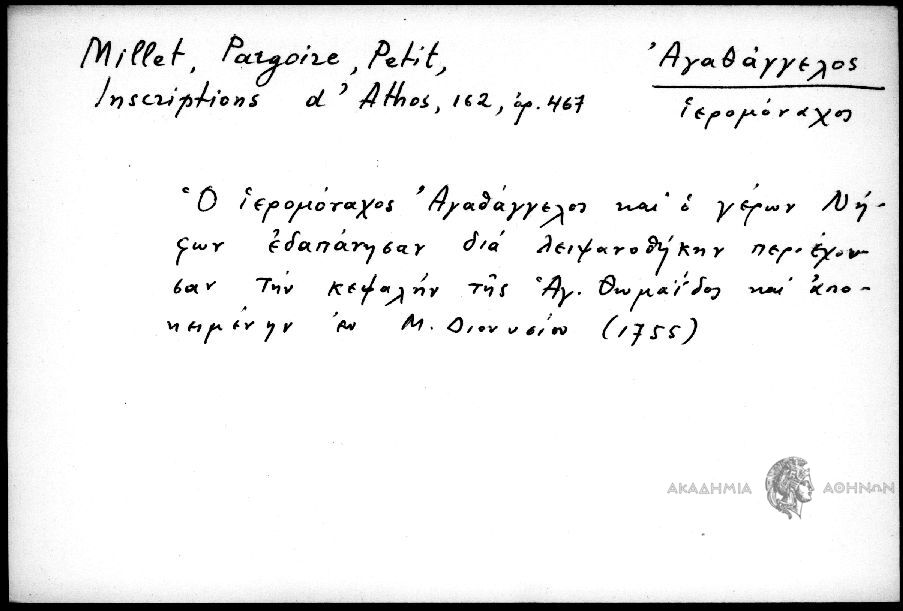 Millet, Pargoire, Petit,
Inscriptions d'Athos, 162, ἀρ. 467
Ἀγαθάγγελος
ἱερομόναχος
Ὁ ἱερομόναχος Ἀγαθάγγελος καί ὁ γέρων Νή-
φων ἐδαπάνησαν διά λειψανοθήκην περιέχου
σαν τήν κεφαλήν τῆς Ἁγ. Θωμαΐδος καί ἀπο-
κειμένην ἐν Μ. Διονυσίου (1755)
ΑΚΑΔΗΜΙΑ ΑΘΗΝΩΝ